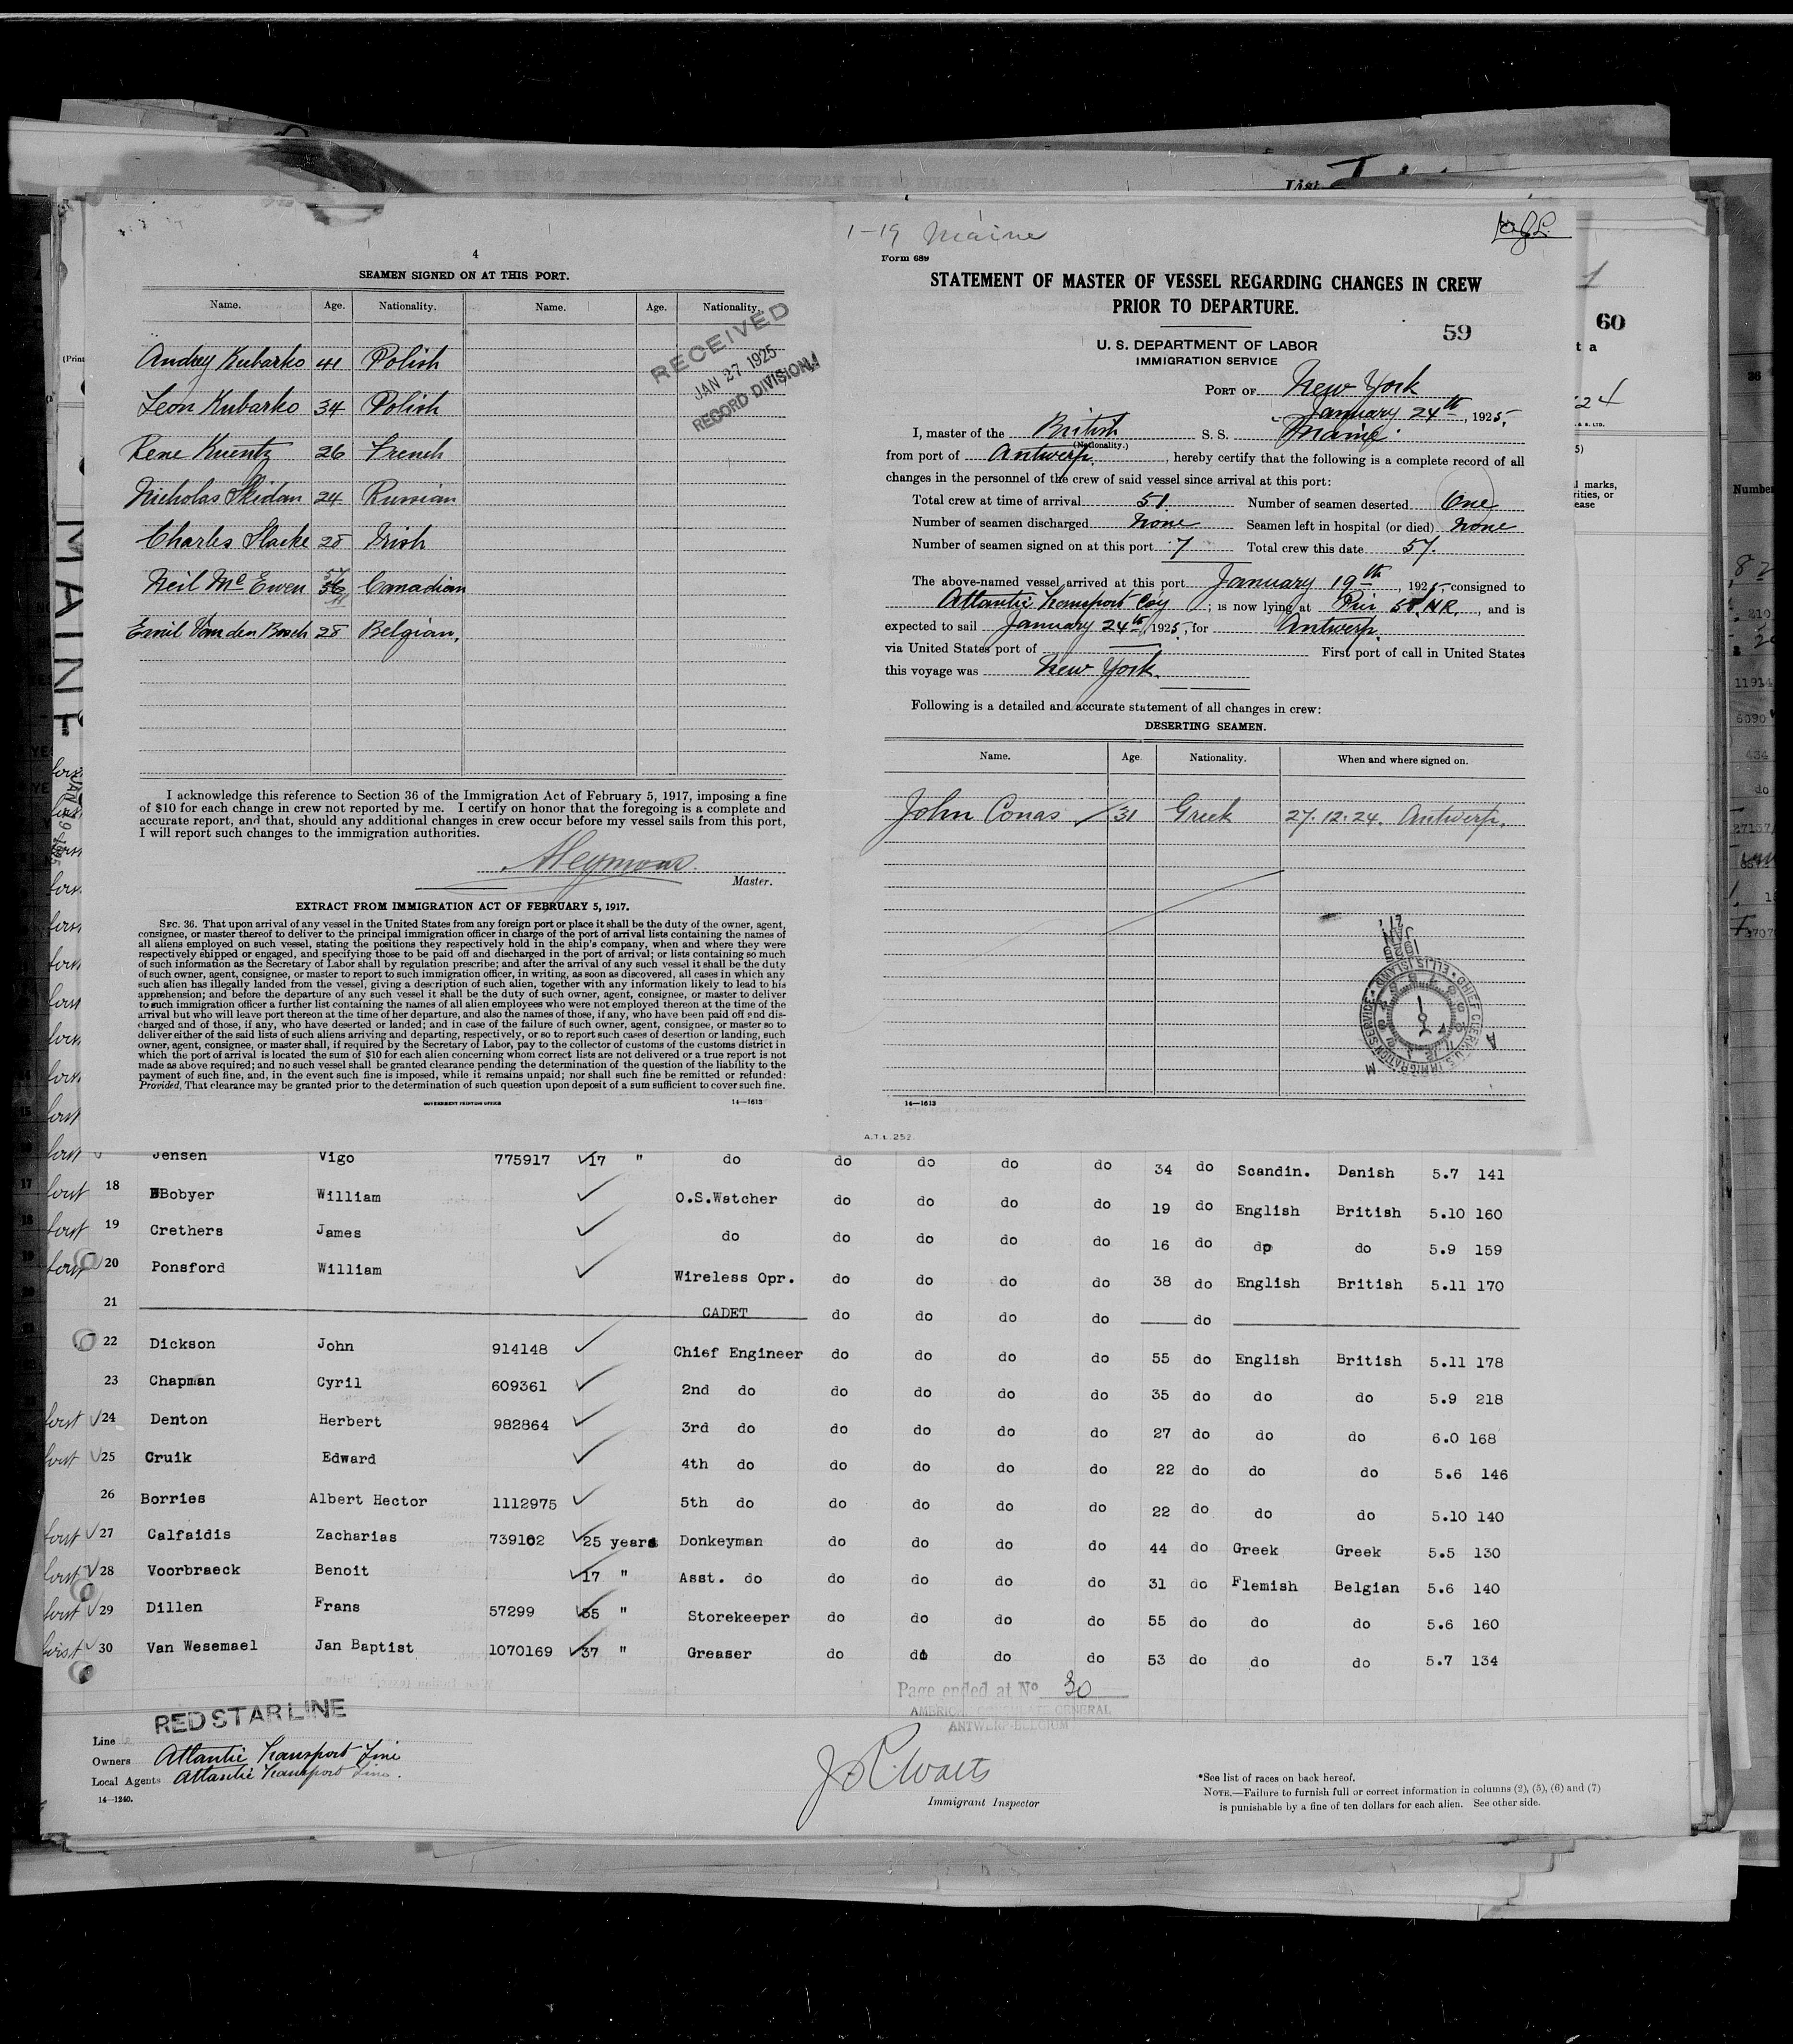 4
SEAMEN SIGNED ON AT THIS PORT.
Name. Age. Nationality. Name. Age. Nationality.
Andrey Kubarko 41 Polish
Leon Kubarko 34 Polish
Rene Kuentz 26 French
Nicholas Skidan 24 Russian
Charles Slacke 28 Irish
Neil McEwen 57 Canadian
Emil Van den Bosch 28 Belgian,
RECEIVED
JAN 27 1925
RECORD DIVISION
I acknowledge this reference to Section 36 of the Immigration Act of February 5, 1917, imposing a fine
of $10 for each change in crew not reported by me. I certify on honor that the foregoing is a complete and
accurate report, and that, should any additional changes in crew occur before my vessel sails from this port,
I will report such changes to the immigration authorities.
Master.
EXTRACT FROM IMMIGRATION ACT OF FEBRUARY 5, 1917.
SEC. 36. That upon arrival of any vessel in the United States from any foreign port or place it shall be the duty of the owner, agent,
consignee, or master thereof to deliver to the principal immigration officer in charge of the port of arrival lists containing the names of
all aliens employed on such vessel, stating the positions they respectively hold in the ship's company, when and where they were
respectively shipped or engaged, and specifying those to be paid off and discharged in the port of arrival; or lists containing so much
of such information as the Secretary of Labor shall by regulation prescribe; and after the arrival of any such vessel it shall be the duty
of such owner, agent, consignee, or master to report to such immigration officer, in writing, as soon as discovered, all cases in which any
such alien has illegally landed from the vessel, giving a description of such alien, together with any information likely to lead to his
apprehension; and before the departure of any such vessel it shall be the duty of such owner, agent, consignee, or master to deliver
to such immigration officer a further list containing the names of all alien employees who were not employed thereon at the time of the
arrival but who will leave port thereon at the time of her departure, and also the names of those, if any, who have been paid off and dis-
charged and of those, if any, who have deserted or landed; and in case of the failure of such owner, agent, consignee, or master so to
deliver either of the said lists of such aliens arriving and departing, respectively, or so to report such cases of desertion or landing, such
owner, agent, consignee, or master shall, if required by the Secretary of Labor, pay to the collector of customs of the customs district in
which the port of arrival is located the sum of $10 for each alien concerning whom correct lists are not delivered or a true report is not
made as above required; and no such vessel shall be granted clearance pending the determination of the question of the liability to the
payment of such fine, and, in the event such fine is imposed, while it remains unpaid; nor shall such fine be remitted or refunded:
Provided, That clearance may be granted prior to the determination of such question upon deposit of a sum sufficient to cover such fine.
GOVERNMENT PRINTING OFFICE 14—1613
1-19 Maine
Form 689
STATEMENT OF MASTER OF VESSEL REGARDING CHANGES IN CREW
PRIOR TO DEPARTURE.
59
U. S. DEPARTMENT OF LABOR
IMMIGRATION SERVICE
PORT OF New York
January 24th, 1925.
I, master of the British S. S. Maine.
(Nationality.)
from port of Antwerp., hereby certify that the following is a complete record of all
changes in the personnel of the crew of said vessel since arrival at this port:
Total crew at time of arrival 51. Number of seamen deserted One
Number of seamen discharged None Seamen left in hospital (or died) None
Number of seamen signed on at this port 7 Total crew this date 57.
The above-named vessel arrived at this port January 19th, 1925, consigned to
Atlantic Transport Coy; is now lying at Pier 58. N.R., and is
expected to sail January 24th, 1925, for Antwerp.
via United States port of First port of call in United States
this voyage was New York.
Following is a detailed and accurate statement of all changes in crew:
DESERTING SEAMEN.
Name. Age. Nationality. When and where signed on.
John Conas 31 Greek 27.12.24. Antwerp.
27
JAN
1925
CHIEF CLERK U.S. IMMIGRATION SERVICE ELLIS ISLAND
A M
14—1613
A.T.L. 252.
60
MAINE
Number
Jensen Vigo 775917 17 " do do do do do 34 do Scandin. Danish 5.7 141
first 18 Bobyer William O.S.Watcher do do do do 19 do English British 5.10 160
first 19 Crethers James do do do do do 16 do do do 5.9 159
first 20 Ponsford William Wireless Opr. do do do do 38 do English British 5.11 170
21 CADET do do do do do
22 Dickson John 914148 Chief Engineer do do do do 55 do English British 5.11 178
23 Chapman Cyril 609361 2nd do do do do do 35 do do do 5.9 218
first 24 Denton Herbert 982864 3rd do do do do do 27 do do do 6.0 168
first 25 Cruik Edward 4th do do do do do 22 do do do 5.6 146
26 Borries Albert Hector 1112975 5th do do do do do 22 do do do 5.10 140
first 27 Calfaidis Zacharias 739102 25 years Donkeyman do do do do 44 do Greek Greek 5.5 130
first 28 Voorbraeck Benoit 17 " Asst. do do do do do 31 do Flemish Belgian 5.6 140
first 29 Dillen Frans 57299 35 " Storekeeper do do do do 55 do do do 5.6 160
first 30 Van Wesemael Jan Baptist 1070169 37 " Greaser do do do do 53 do do do 5.7 134
Page ended at No 30
AMERICAN CONSULATE GENERAL
ANTWERP-BELGIUM
Line RED STAR LINE
Owners Atlantic Transport Line
Local Agents Atlantic Transport Line.
14—1240.
Immigrant Inspector
*See list of races on back hereof.
NOTE.—Failure to furnish full or correct information in columns (2), (5), (6) and (7)
is punishable by a fine of ten dollars for each alien. See other side.